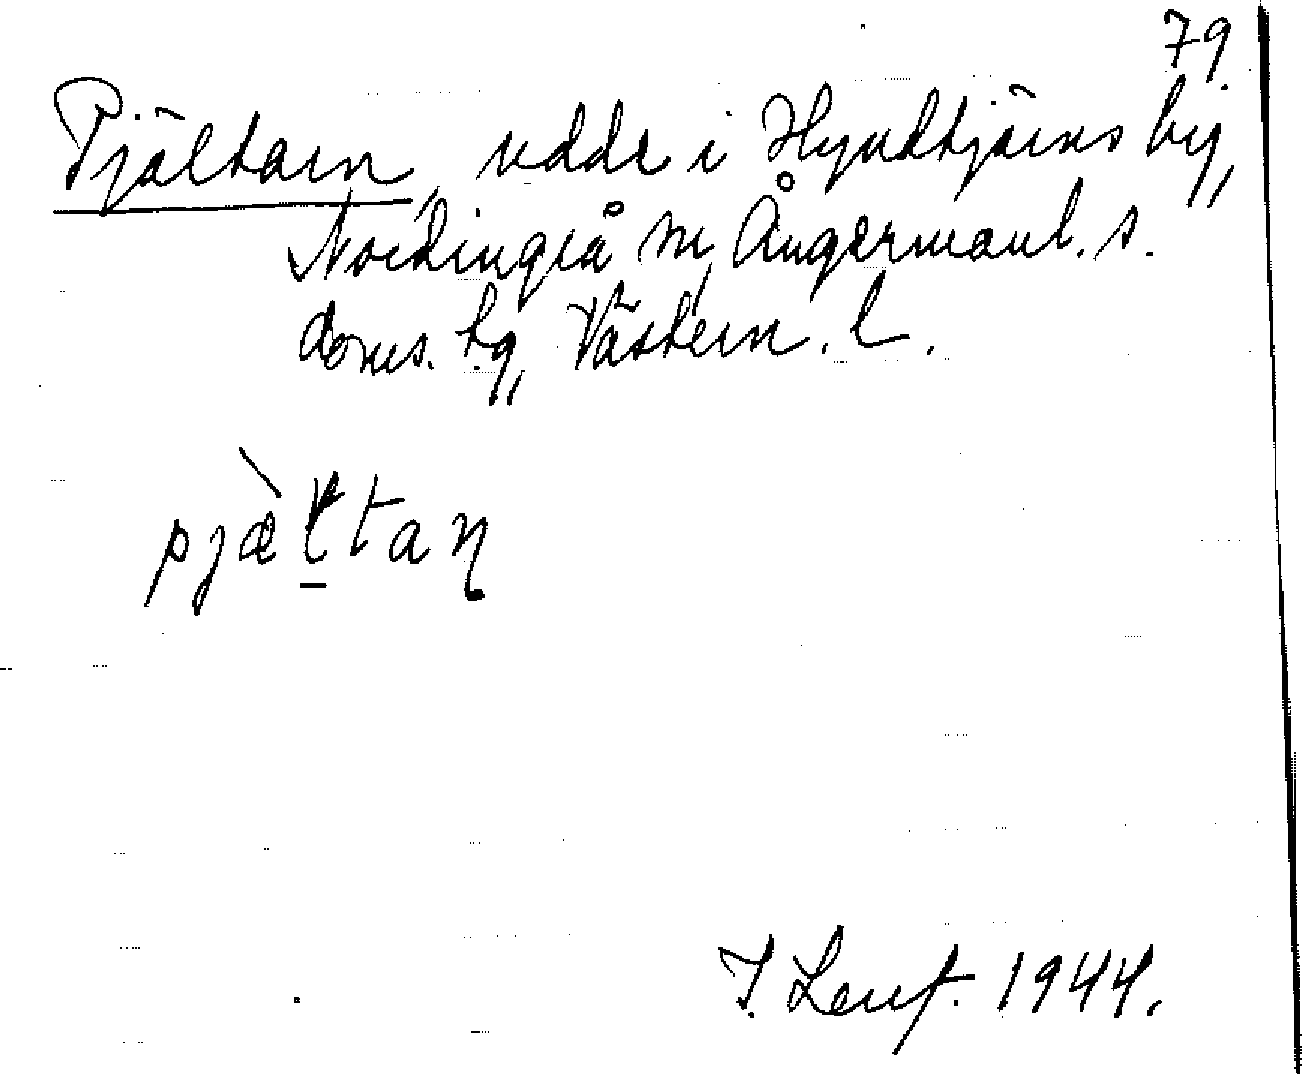 79.
Pjältarn, udde i Hyndtjärns by,
Nordingrå sn, Ångermanl. s.
doms. tg, Västern. l.
pjæ̀ltaɳ
J. Lenf. 1944.